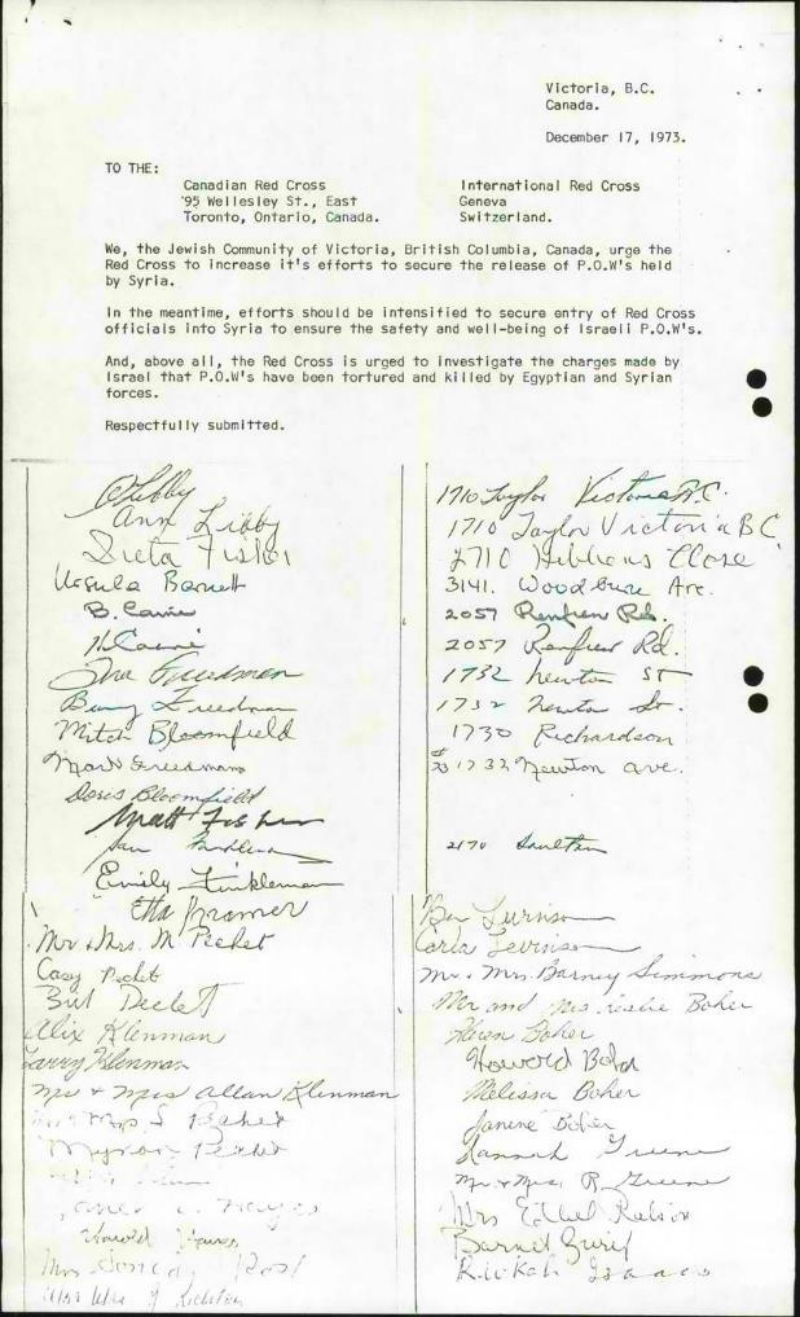 Victoria, B.C.
Canada.
December 17, 1973.
TO THE:
Canadian Red Cross
'95 Wellesley St., East
Toronto, Ontario, Canada.
International Red Cross
Geneva
Switzerland.
We, the Jewish Community of Victoria, British Columbia, Canada, urge the
Red Cross to increase it's efforts to secure the release of P.O.W's held
by Syria.
In the meantime, efforts should be intensified to secure entry of Red Cross
officials into Syria to ensure the safety and well-being of Israeli P.O.W's.
And, above all, the Red Cross is urged to investigate the charges made by
Israel that P.O.W's have been tortured and killed by Egyptian and Syrian
forces.
Respectfully submitted.
Libby 1710 Taylor Victoria B.C.
Ann Libby 1710 Taylor Victoria BC
Fisher 2710 Close
Ursula Barnett 3141. Woodburn Ave.
B. 2057 Renfrew Rd.
H 2057 Renfrew Rd.
Freedman 1732 Newton ST
Freedman 1732 Newton St.
Mitch Bloomfield 1730 Richardson
Mark Freedman 1732 Newton ave.
Doris Bloomfield
Matt Fisher
2170
Emily Finkleman
Etta Kramer
Mr & Mrs. M Pechet
Casy Pechet
Bill Pechet
Alix Klenman
Larry Klenman
Mr & Mrs Allan Klenman
Mrs S
Myron Pechet
Hayes
Harold Hayes
Mrs
Ben Levinson
Carla Levinson
Mr. & Mrs. Barney Simmons
Mr and Mrs Leslie Boher
Karen Boher
Howard Boher
Melissa Boher
Janine Boher
Hannah Greene
Mr. & Mrs. R. Greene
Mrs Ethel
Barnet
Rivkah Isaacs